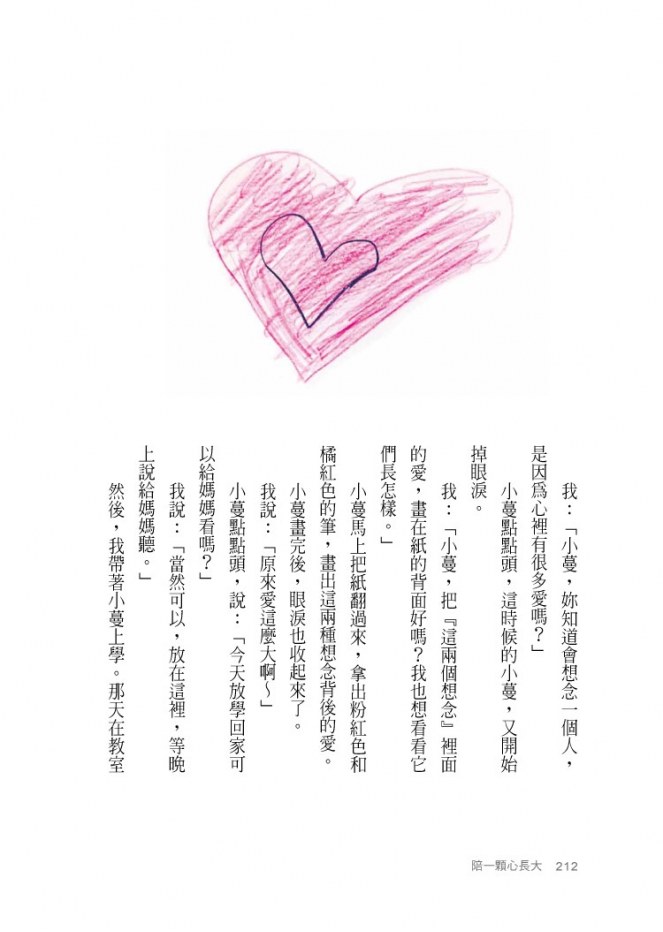 我：「小蔓，妳知道會想念一個人，
是因爲心裡有很多愛嗎？」
小蔓點點頭，這時候的小蔓，又開始
掉眼淚。
我：「小蔓，把『這兩個想念』裡面
的愛，畫在紙的背面好嗎？我也想看看它
們長怎樣。」
小蔓馬上把紙翻過來，拿出粉紅色和
橘紅色的筆，畫出這兩種想念背後的愛。
小蔓畫完後，眼淚也收起來了。
我說：「原來愛這麼大啊～」
小蔓點點頭，說：「今天放學回家可
以給媽媽看嗎？」
我說：「當然可以，放在這裡，等晚
上說給媽媽聽。」
然後，我帶著小蔓上學。那天在教室
陪一顆心長大 212